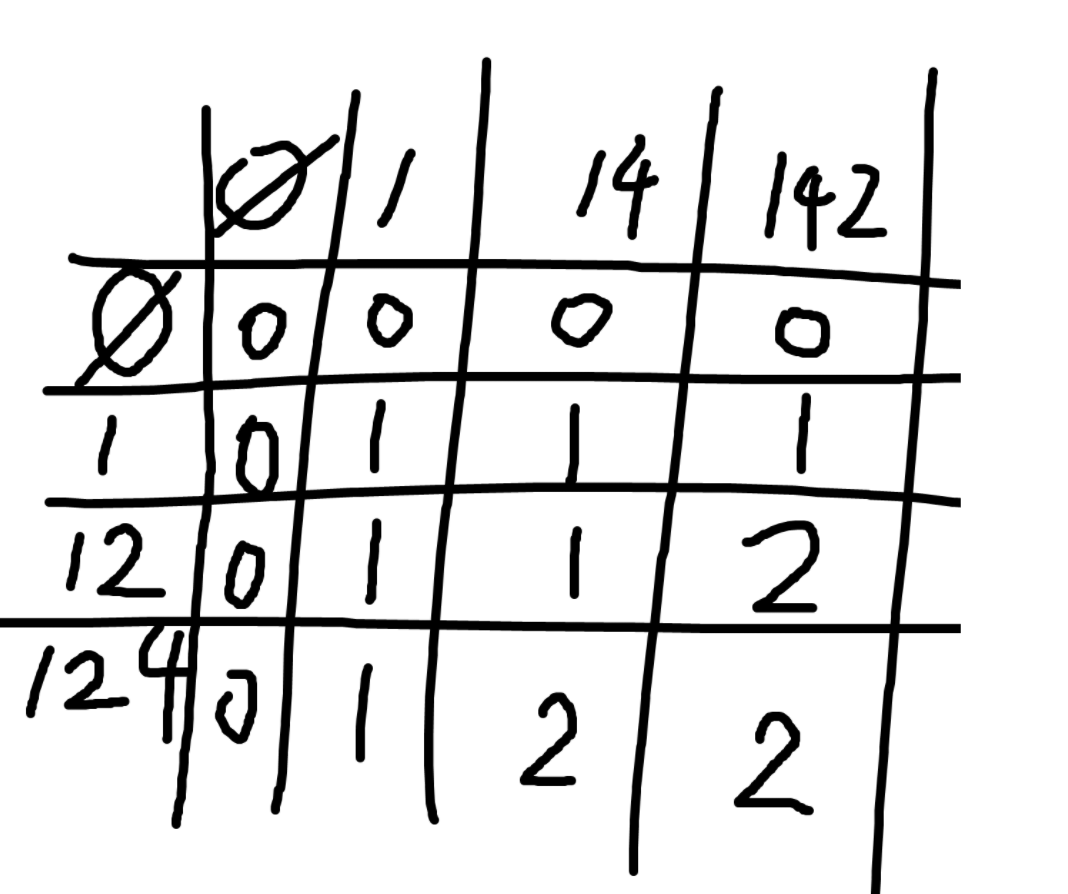 ∅ 1 14 142
∅ 0 0 0 0
1 0 1 1 1
12 0 1 1 2
124 0 1 2 2